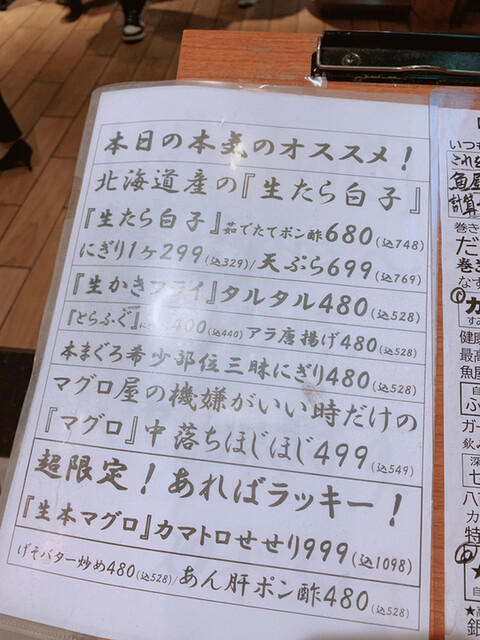 本日の本気のオススメ!
北海道産の『生たら白子』
『生たら白子』茹でたてポン酢680(込748)
にぎり1ヶ299(込329)/天ぷら699(込769)
『生かきフライ』タルタル480(込528)
『とらふぐ』400(込440)アラ唐揚げ480(込528)
本まぐろ希少部位三昧にぎり480(込528)
マグロ屋の機嫌がいい時だけの
『マグロ』中落ちほじほじ499(込549)
超限定!あればラッキー!
『生本マグロ』カマトロせせり999(込1098)
げそバター炒め480(込528)/あん肝ポン酢480(込528)
いつも
これを
魚屋
計算
巻き
だ
巻き
なす
健康
最高
魚屋
自
ふ
ガー
飲み
深
七
八
カ
特
自
★高
銀